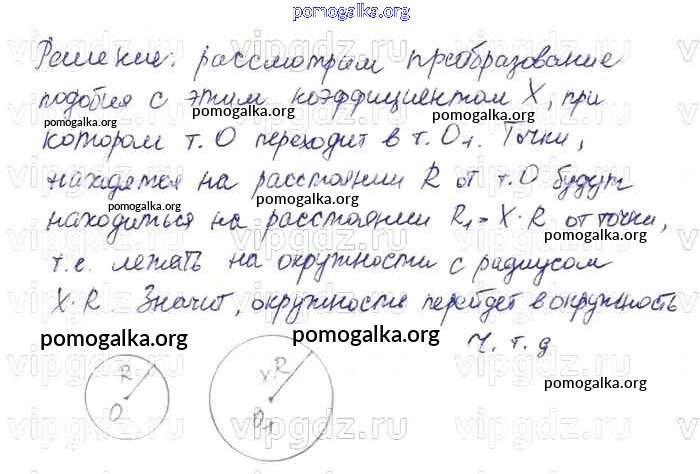 pomogalka.org
Решение: рассмотрим преобразование
подобия с этим коэффициентом X, при
pomogalka.org
pomogalka.org
котором т. О переходит в т. О₁. Точки,
pomogalka.org
находятся на расстоянии R от т. О будут
находиться на расстоянии R₁ = X · R от точки,
pomogalka.org
т.е. лежать на окружности с радиусом
X · R. Значит, окружности перейдет в окружность
pomogalka.org
pomogalka.org
Ч. т. д
pomogalka.org
R
O
X·R
O₁
pomogalka.org
vipgdz.ru